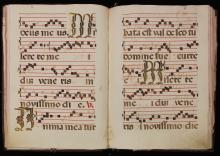 deus meus
serere me i
dis vene ris
novissimo di e.
nima mea tur
bata est val de se o tu
domine suc curre
Misere re
me i dui vene
ris novissimo die